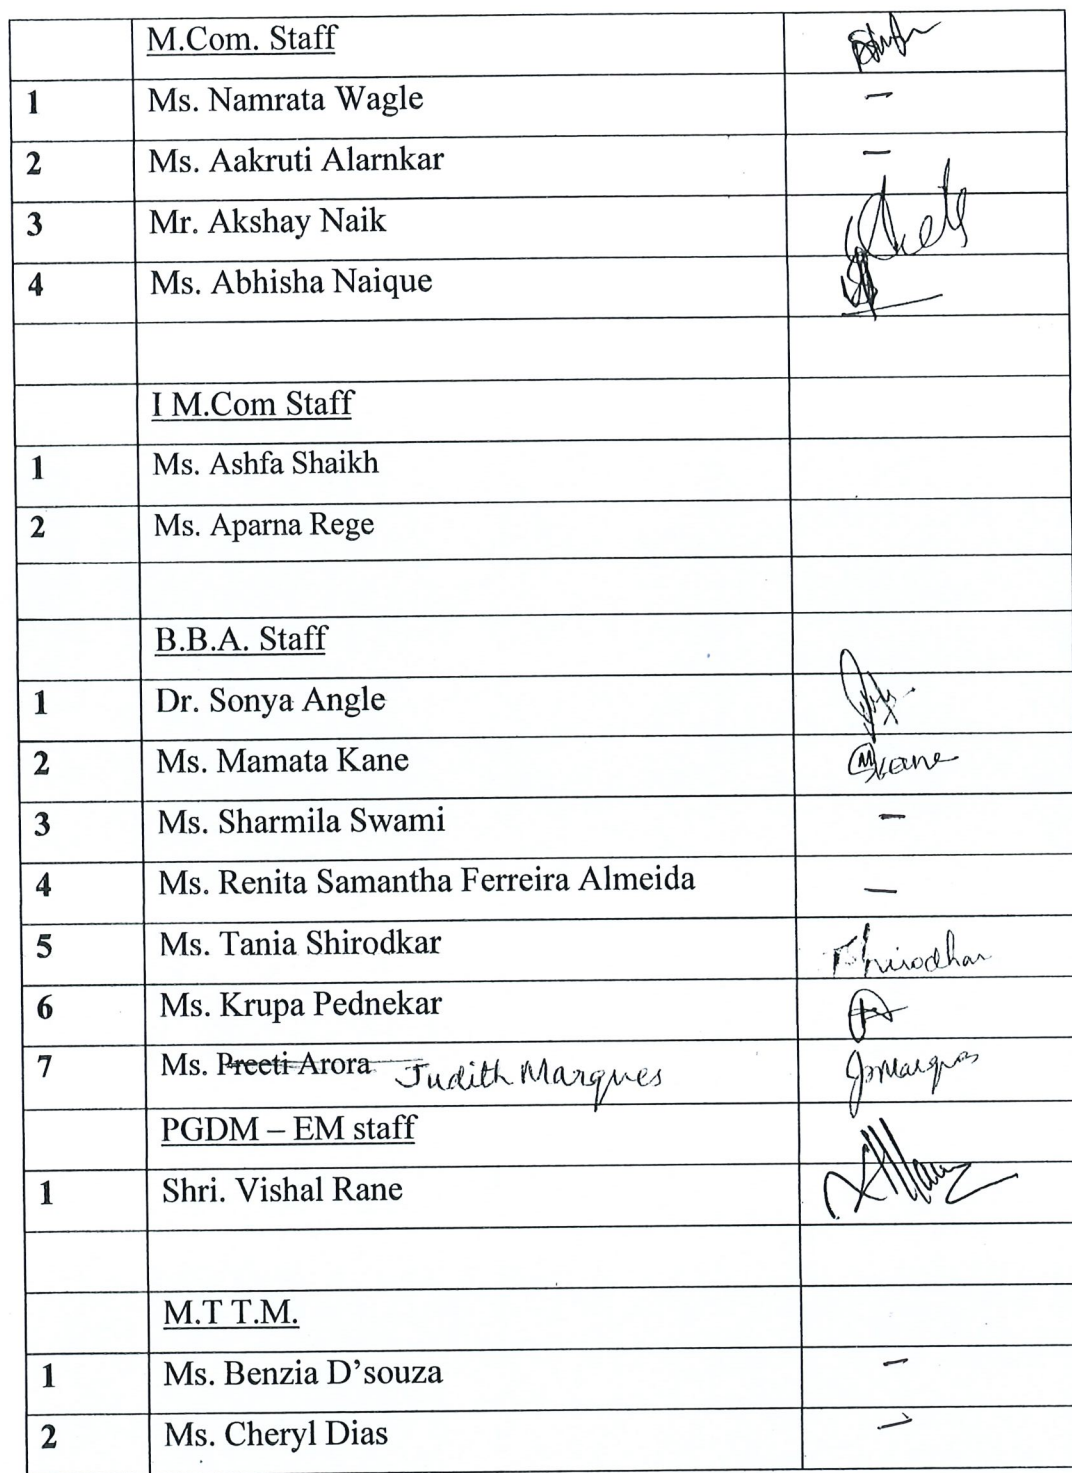 M.Com. Staff
1 Ms. Namrata Wagle –
2 Ms. Aakruti Alarnkar –
3 Mr. Akshay Naik
4 Ms. Abhisha Naique
I M.Com Staff
1 Ms. Ashfa Shaikh
2 Ms. Aparna Rege
B.B.A. Staff
1 Dr. Sonya Angle
2 Ms. Mamata Kane MKane
3 Ms. Sharmila Swami –
4 Ms. Renita Samantha Ferreira Almeida –
5 Ms. Tania Shirodkar TShirodkar
6 Ms. Krupa Pednekar
7 Ms. Preeti Arora Judith Marques JMarques
PGDM – EM staff
1 Shri. Vishal Rane
M.T T.M.
1 Ms. Benzia D’souza –
2 Ms. Cheryl Dias –